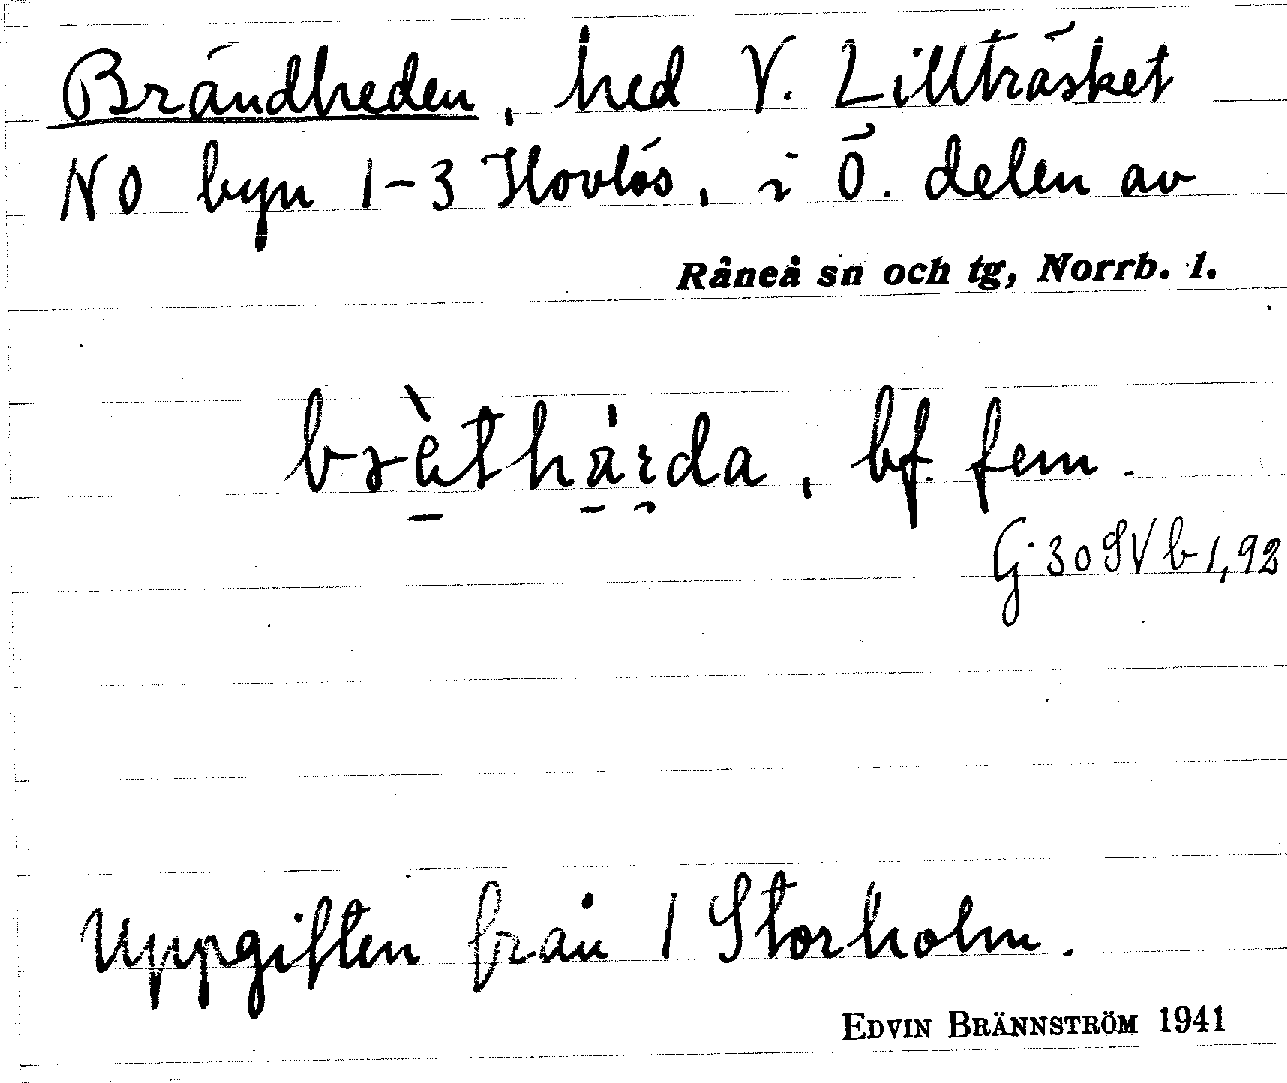 Brändheden, hed V. Lillträsket
NO byn 1-3 Hovlös, i Ö. delen av
Råneå sn och tg, Norrb. l.
bf. fem.
G 30 SV b 1,92
Uppgiften från 1 Storholm.
EDVIN BRÄNNSTRÖM 1941